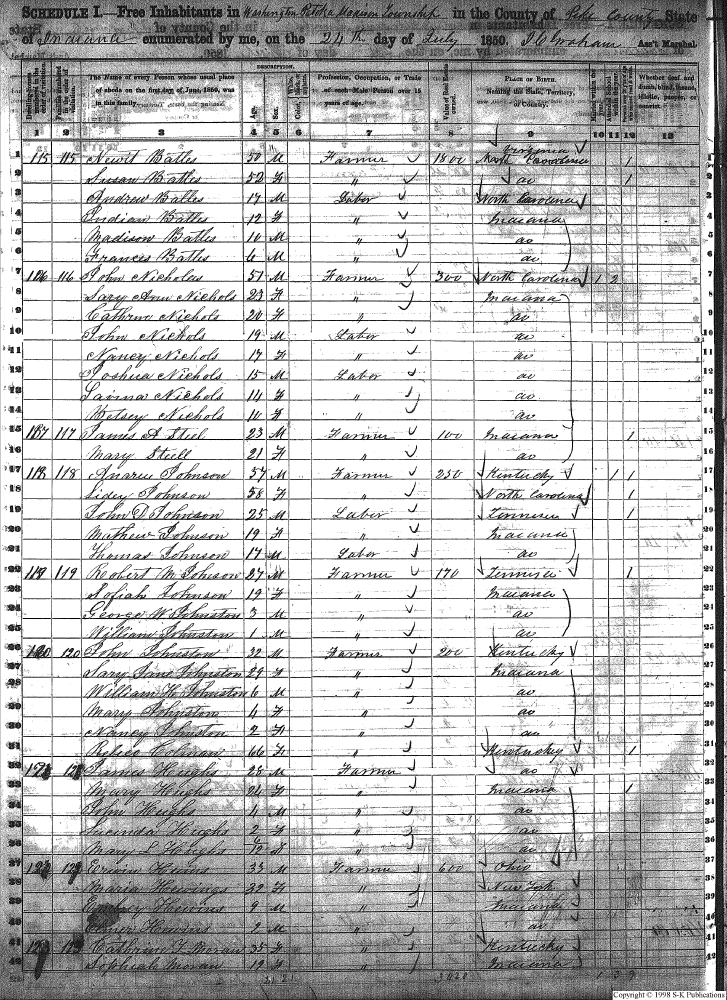 SCHEDULE I.—Free Inhabitants in Washington Patoka Madison Township in the County of Pike County State
of Indiana enumerated by me, on the 24th day of July 1850. Graham Ass't Marshal.
The Name of every Person whose usual place of abode on the first day of June, 1850, was in this family.
DESCRIPTION.
Age. Sex.
Profession, Occupation, or Trade of each Male Person over 15 years of age.
Value of Real Estate owned.
PLACE OF BIRTH. Naming the State, Territory, or Country.
Whether deaf and dumb, blind, insane, idiotic, pauper, or convict.
1 2 3 4 5 6 7 8 9 10 11 12 13
Virginia
1 115 115 Newit Batles 50 M Farmer 1800 North Carolina 1
2 Susan Batles 52 F " do 1
3 Andrew Batles 17 M Labor North Carolina
4 Indian Batles 12 F " Indiana
5 Madison Batles 10 M " do
6 Frances Batles 6 M " do
7 116 116 John Nicholas 51 M Farmer 300 North Carolina 1 2
8 Sary Ann Nichols 23 F " Indiana
9 Cathrine Nichols 20 F " do
10 John Nichols 19 M Labor do
11 Nancy Nichols 17 F " do
12 Joshua Nichols 15 M Labor do
13 Lavina Nichols 14 F " do
14 Betsey Nichols 10 F " do
15 117 117 James A Steel 23 M Farmer 100 Indiana 1
16 Mary Steell 21 F " do
17 118 118 Johnson 57 M Farmer 250 Kentucky 1 1
18 Johnson 58 F " North Carolina 1
19 John D Johnson 25 M Labor Tennessee 1
20 Mathew Johnson 19 F " Indiana
21 Thomas Johnson 17 M Labor do
22 119 119 Robert M Johnson 27 M Farmer 170 1
23 Sofiah Johnson 19 F " Indiana
24 George W Johnston 3 M " do
25 William Johnston 1 M " do
26 120 120 John Johnston 32 M Farmer 200 Kentucky
27 Sary Jane Johnston 29 F " Indiana
28 William H Johnston 6 M " do
29 Mary Johnston 4 F " do
30 Nancy Johnston 2 F " do
31 66 F " Kentucky 1
32 James Heighs 28 M Farmer do
33 Mary Heighs 24 F " Indiana 1
34 John Heighs 4 M " do
35 Lucinda Heighs 2 F " do
36 Mary S Heighs 6/12 F " do
37 33 M Farmer 600 Ohio
38 Maria 32 F " New York
39 9 M " Indiana
40 2 M " do
41 Cathrine Moran 35 F " Kentucky
42 Sophiah Moran 19 F " Indiana
Copyright © 1998 S-K Publications